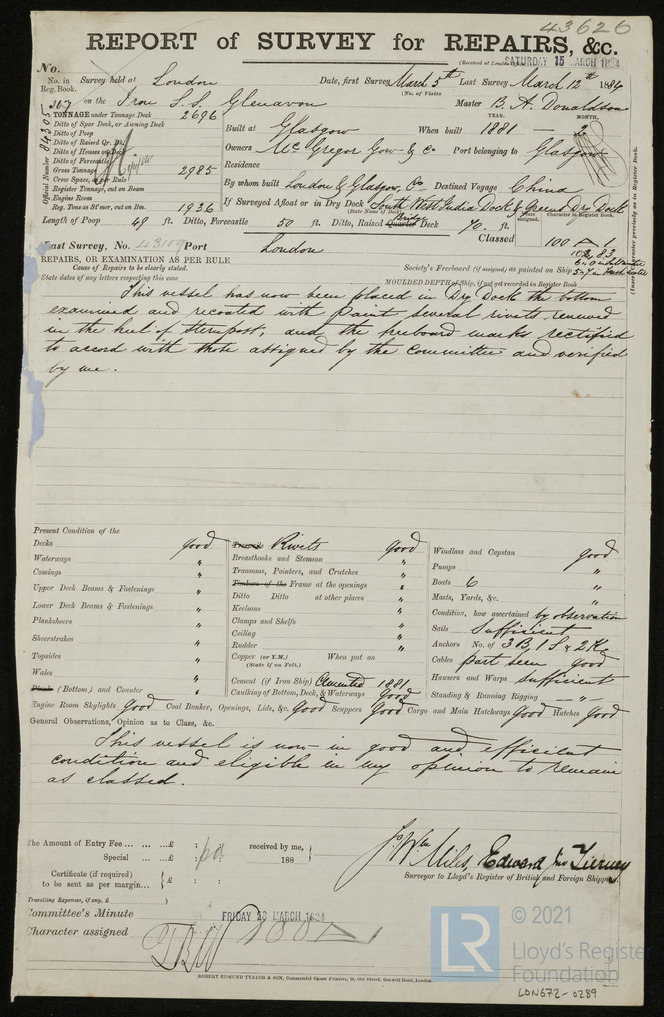 43626
REPORT of SURVEY for REPAIRS, &c.
(Received at London SATURDAY 15 MARCH 1884
No.
No. in Reg. Book. Survey held at London Date, first Survey March 5th Last Survey March 12th 1884
(No. of Visits)
367 on the Iron S.S. Glenavon Master B. A. Donaldson
TONNAGE under Tonnage Deck 2696
Ditto of Spar Deck, or Awning Deck
Ditto of Poop
Ditto of Raised Qr. Dk.
Ditto of Houses on Deck
Ditto of Forecastle
Gross Tonnage 2985
Crew Space, per Rule
Register Tonnage, cut on Beam
Engine Room
Reg. Tons as St'mer, cut on Bm. 1936
Official Number 84305
YEAR. MONTH.
Built at Glasgow When built 1881 — 2
Owners McGregor Gow & Co Port belonging to Glasgow
Residence
By whom built London & Glasgow, Co Destined Voyage China
If Surveyed Afloat or in Dry Dock South West India Dock & Green's Dry Dock
(State Name of Dock)
Years assigned. Character in Register Book.
Length of Poop 49 ft. Ditto, Forecastle 50 ft. Ditto, Raised Quarter Bridge Deck 70 ft.
Classed 100 A 1
Last Survey, No. 43109 Port London
REPAIRS, OR EXAMINATION AS PER RULE
Cause of Repairs to be clearly stated.
State dates of any letters respecting this case
Society's Freeboard (if assigned) as painted on Ship
MOULDED DEPTH of Ship, if not yet recorded in Register Book
(Insert Character precisely as in Register Book.
This vessel has now been placed in Dry Dock the bottom
examined and recoated with paint several rivets renewed
in the heel of sternpost, and the freeboard marks rectified
to accord with those assigned by the Committee and verified
by me.
Present Condition of the
Decks good
Waterways "
Comings "
Upper Deck Beams & Fastenings "
Lower Deck Beams & Fastenings "
Planksheers "
Sheerstrakes "
Topsides "
Wales "
Plank (Bottom) and Counter "
Treenails Rivets good
Breasthooks and Stemson "
Transoms, Pointers, and Crutches "
Timbers of the Frame at the openings "
Ditto Ditto at other places "
Keelsons "
Clamps and Shelfs "
Ceiling "
Rudder "
Copper (or Y.M.) When put on
(State if on Felt.)
Cement (if Iron Ship) Cemented 1881
Caulking of Bottom, Deck, & Waterways Good
Windlass and Capstan good
Pumps "
Boats 6 "
Masts, Yards, &c. "
Condition, how ascertained by observation
Sails Sufficient
Anchors No. of 3 B, 1 S & 2 K.
Cables part seen good
Hawsers and Warps Sufficient
Standing & Running Rigging — " —
Engine Room Skylights Good Coal Bunker, Openings, Lids, &c. Good Scuppers Good Cargo and Main Hatchways Good Hatches Good
General Observations, Opinion as to Class, &c.
This vessel is now in good and efficient
condition and eligible in my opinion to remain
as classed.
The Amount of Entry Fee ... ... ...£ : :
Special ... ...£ : :
received by me,
188
Certificate (if required)
to be sent as per margin...
£ : :
Travelling Expenses, if any, £
Jo Wm Miles Edward Jno Tierney
Surveyor to Lloyd's Register of British and Foreign Shipping.
Committee's Minute FRIDAY 28 MARCH 1884
Character assigned 100 A 1
ROBERT EDMUND TAYLOR & SON, Commercial Steam Printers, 19, Old Street, Goswell Road, London.
LR © 2021
Lloyd's Register
Foundation
LON672-0289